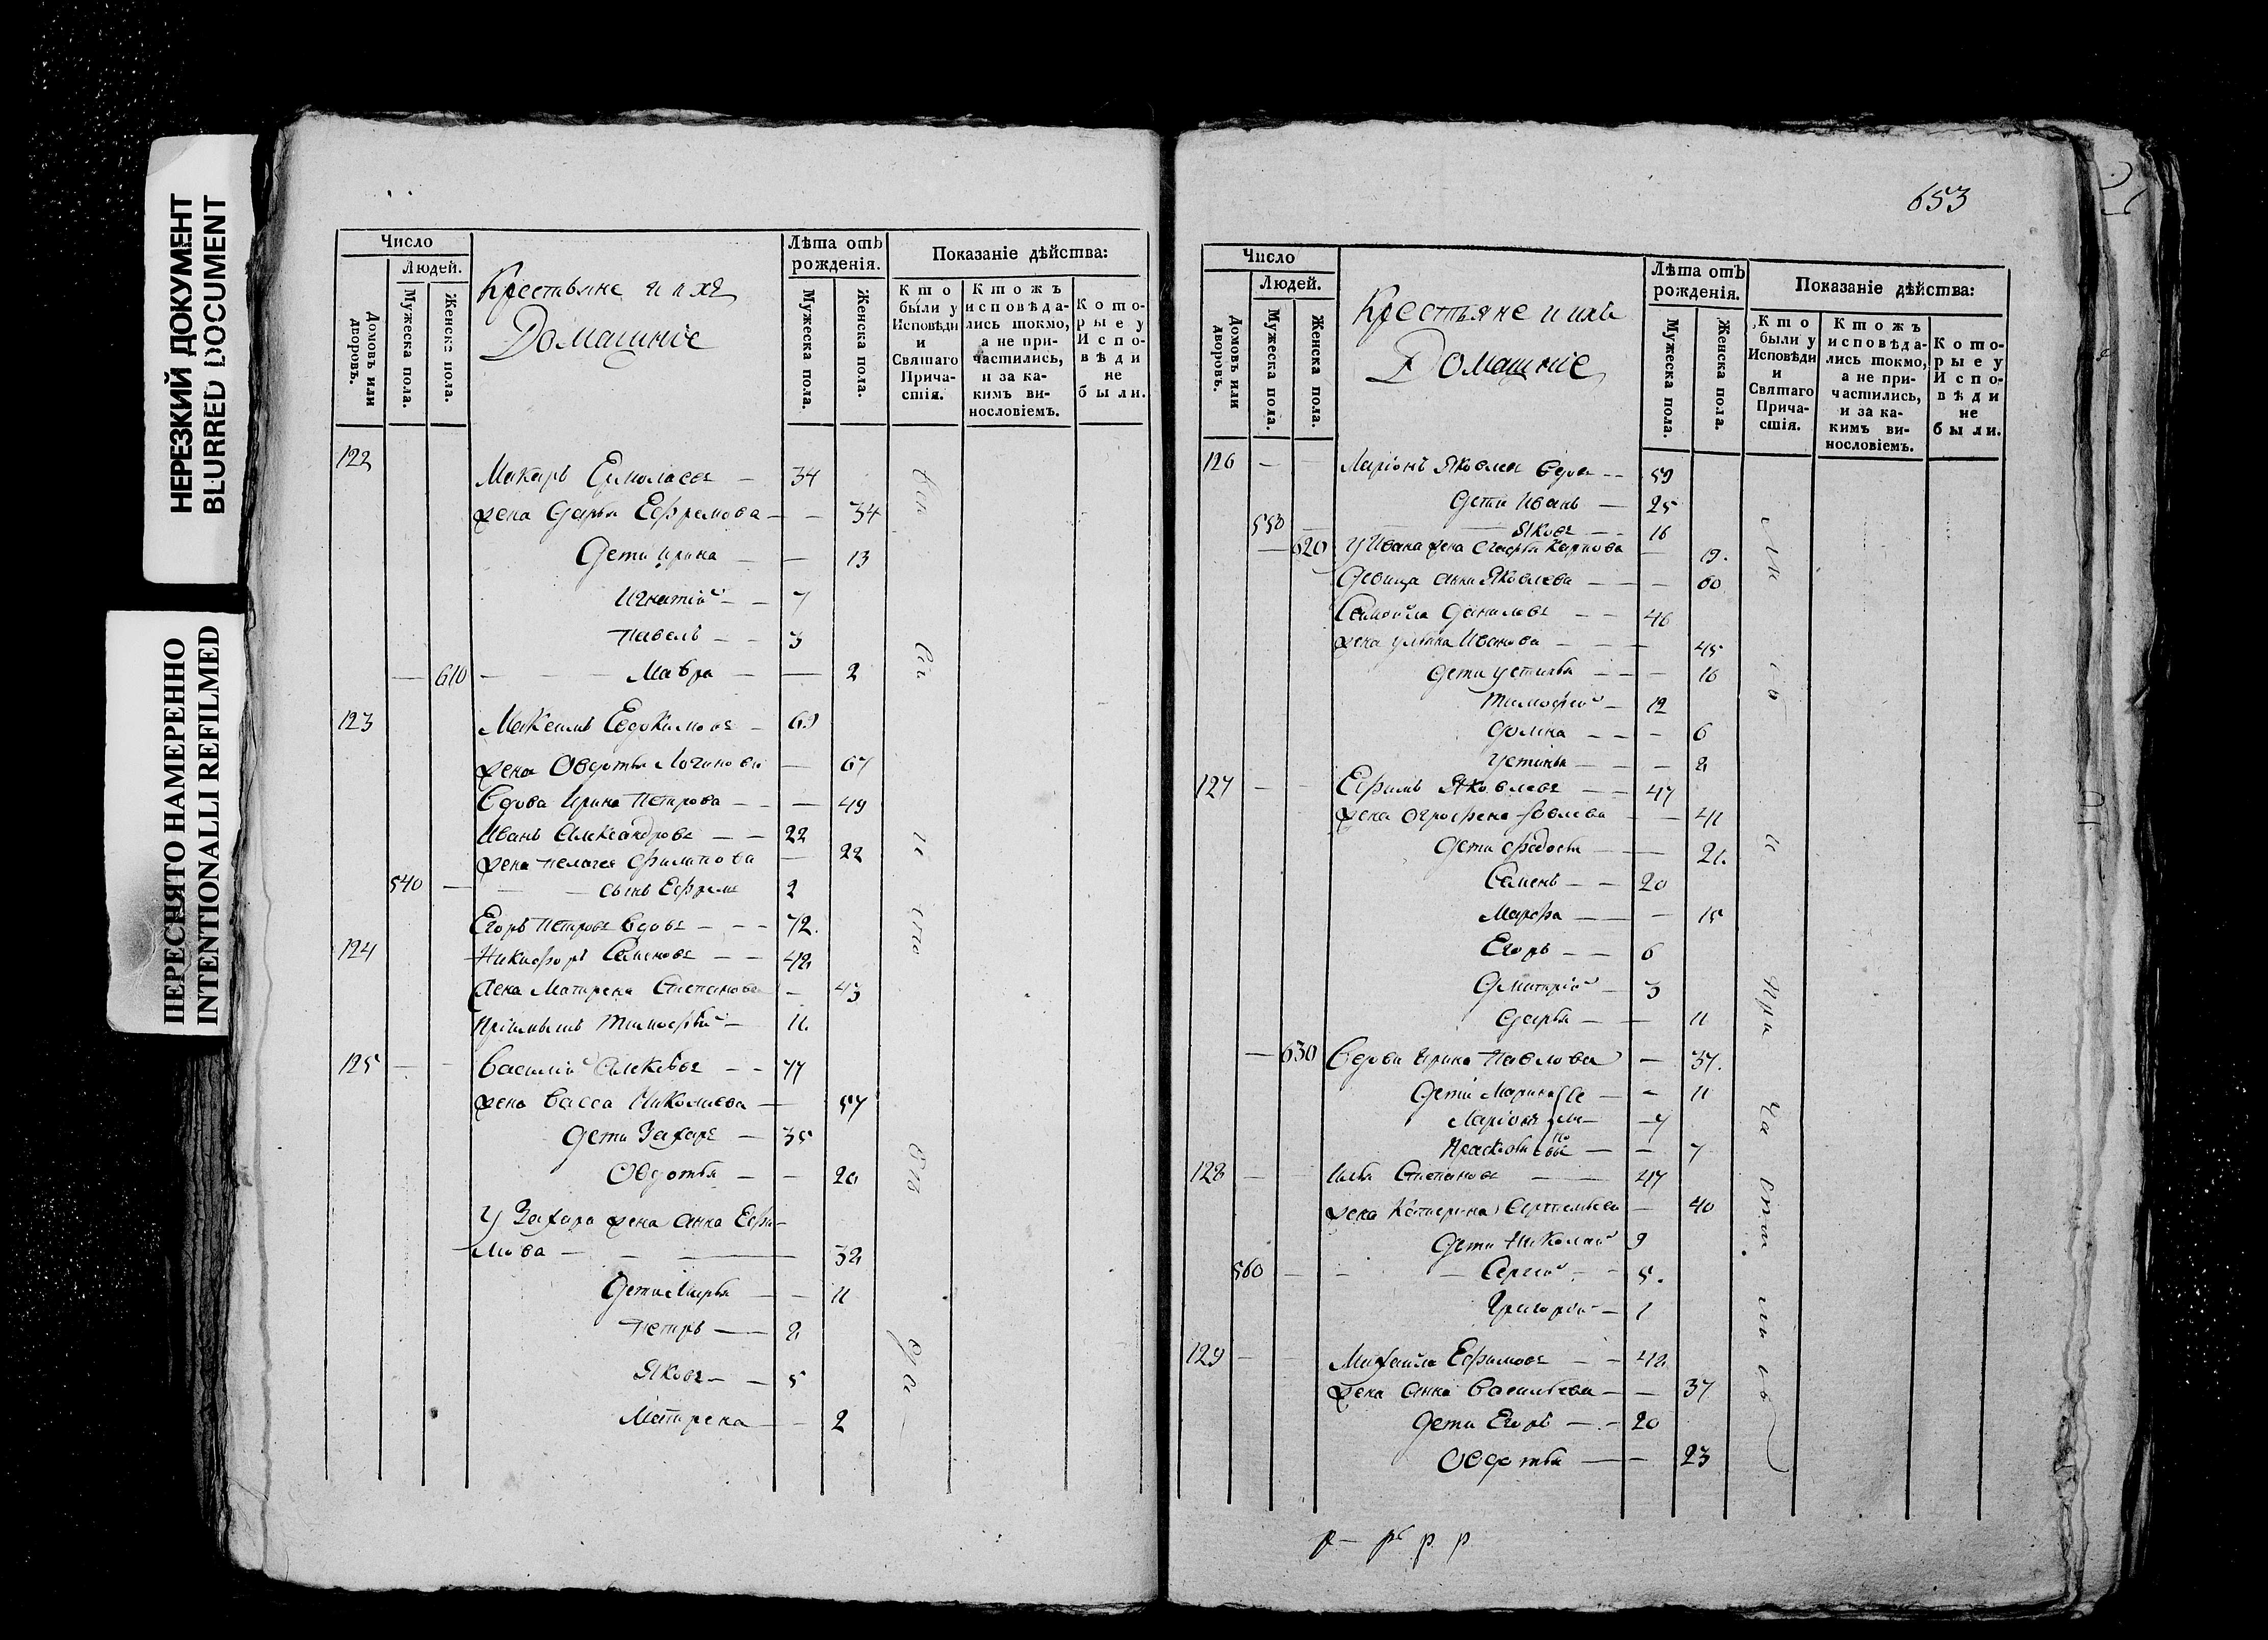 НЕРЕЗКИЙ ДОКУМЕНТ
BLURRED DOCUMENT
ПЕРЕСНЯТО НАМЕРЕННО
INTENTIONALLI REFILMED
Число
Людей.
Домовъ или дворовъ.
Мужеска пола.
Женска пола.
Крестьяне и ихъ
Домашніе
Лѣта отъ рожденія.
Мужеска пола.
Женска пола.
Показаніе дѣйства:
Кто были у Исповѣди и Святаго Прича-стія.
Ктожъ исповѣда-лись токмо, а не при-частились, и за ка-кимъ ви-нословіемъ.
Кото-рые у Испо-вѣди не были.
122 Макаръ Ермолаевъ — 34
жена Дарья Ефремова — — 34
Дети Ирина — — 13
Игнатій — — 7
Павелъ — — 3
— 610 — — — Мавра — — 2
123 Максимъ Евдокимовъ — 69
жена Овдотья Логинова — 67
Вдова Ирина Петрова — — — 49
Иванъ Александровъ — — 22
жена Пелагея Филипова — 22
540 — — — сынъ Ефремъ 2
Егоръ Петровъ вдовъ — — — 72.
124 Никифоръ Семеновъ — — 42
Жена Матрена Степанова — 43
Пріемышъ Тимофѣй — 11.
125 — — Василій Алексѣевъ — — 77
жена Васса Николаева — 57
Дети Захаръ — 35
Овдотья — — 20
У Захара жена Анна Ефи-
мова — — — 32
Дети Марья — — 11
Петръ — 2
Яковъ — — 5
Матрена — — 2
653
Число
Людей.
Домовъ или дворовъ.
Мужеска пола.
Женска пола.
Крестьяне и ихъ
Домашніе
Лѣта отъ рожденія.
Мужеска пола.
Женска пола.
Показаніе дѣйства:
Кто были у Исповѣди и Святаго Прича-стія.
Ктожъ исповѣда-лись токмо, а не при-частились, и за ка-кимъ ви-нословіемъ.
Кото-рые у Испо-вѣди не были.
126 — Ларіонъ Яковлевъ вдовъ — — 59
Дети Иванъ — 25
550 — Яковъ — — 16
— 620 У Ивана жена Карпова — 19.
Девица Анна Яковлева — — — 60
Самойла Даниловъ — — 46
жена Ульяна Иванова — — — 45
Дети Устинья — — — 16
Тимофей — 12
Домна — — — 6
Устинья — — — 2
127 — — Ефимъ Яковлевъ — — 47
жена Огрофена — — 41
Дети Федосья — — 21.
Семенъ — — 20
Марфа — — — 15
Егоръ — — 6
Дмитрій — 3
Дарья — — 11
— 630 Вдова Ирина Павлова — 37.
Дети Марина — — 11
Ларіонъ — 7
Прасковья — — 7
128 — — Илья Степановъ — 47
жена Катерина — 40
Дети Николай 9
560 — — — Сергей — — 5.
Григорій — 1
129 — — Михайла Ефимовъ — — 42
жена Анна Васильева — — 37
Дети Егоръ — — 20
Овдотья — — 23